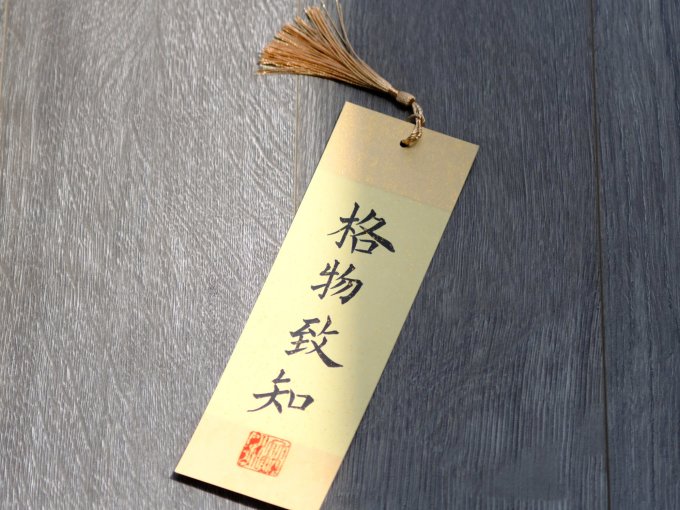 格物致知